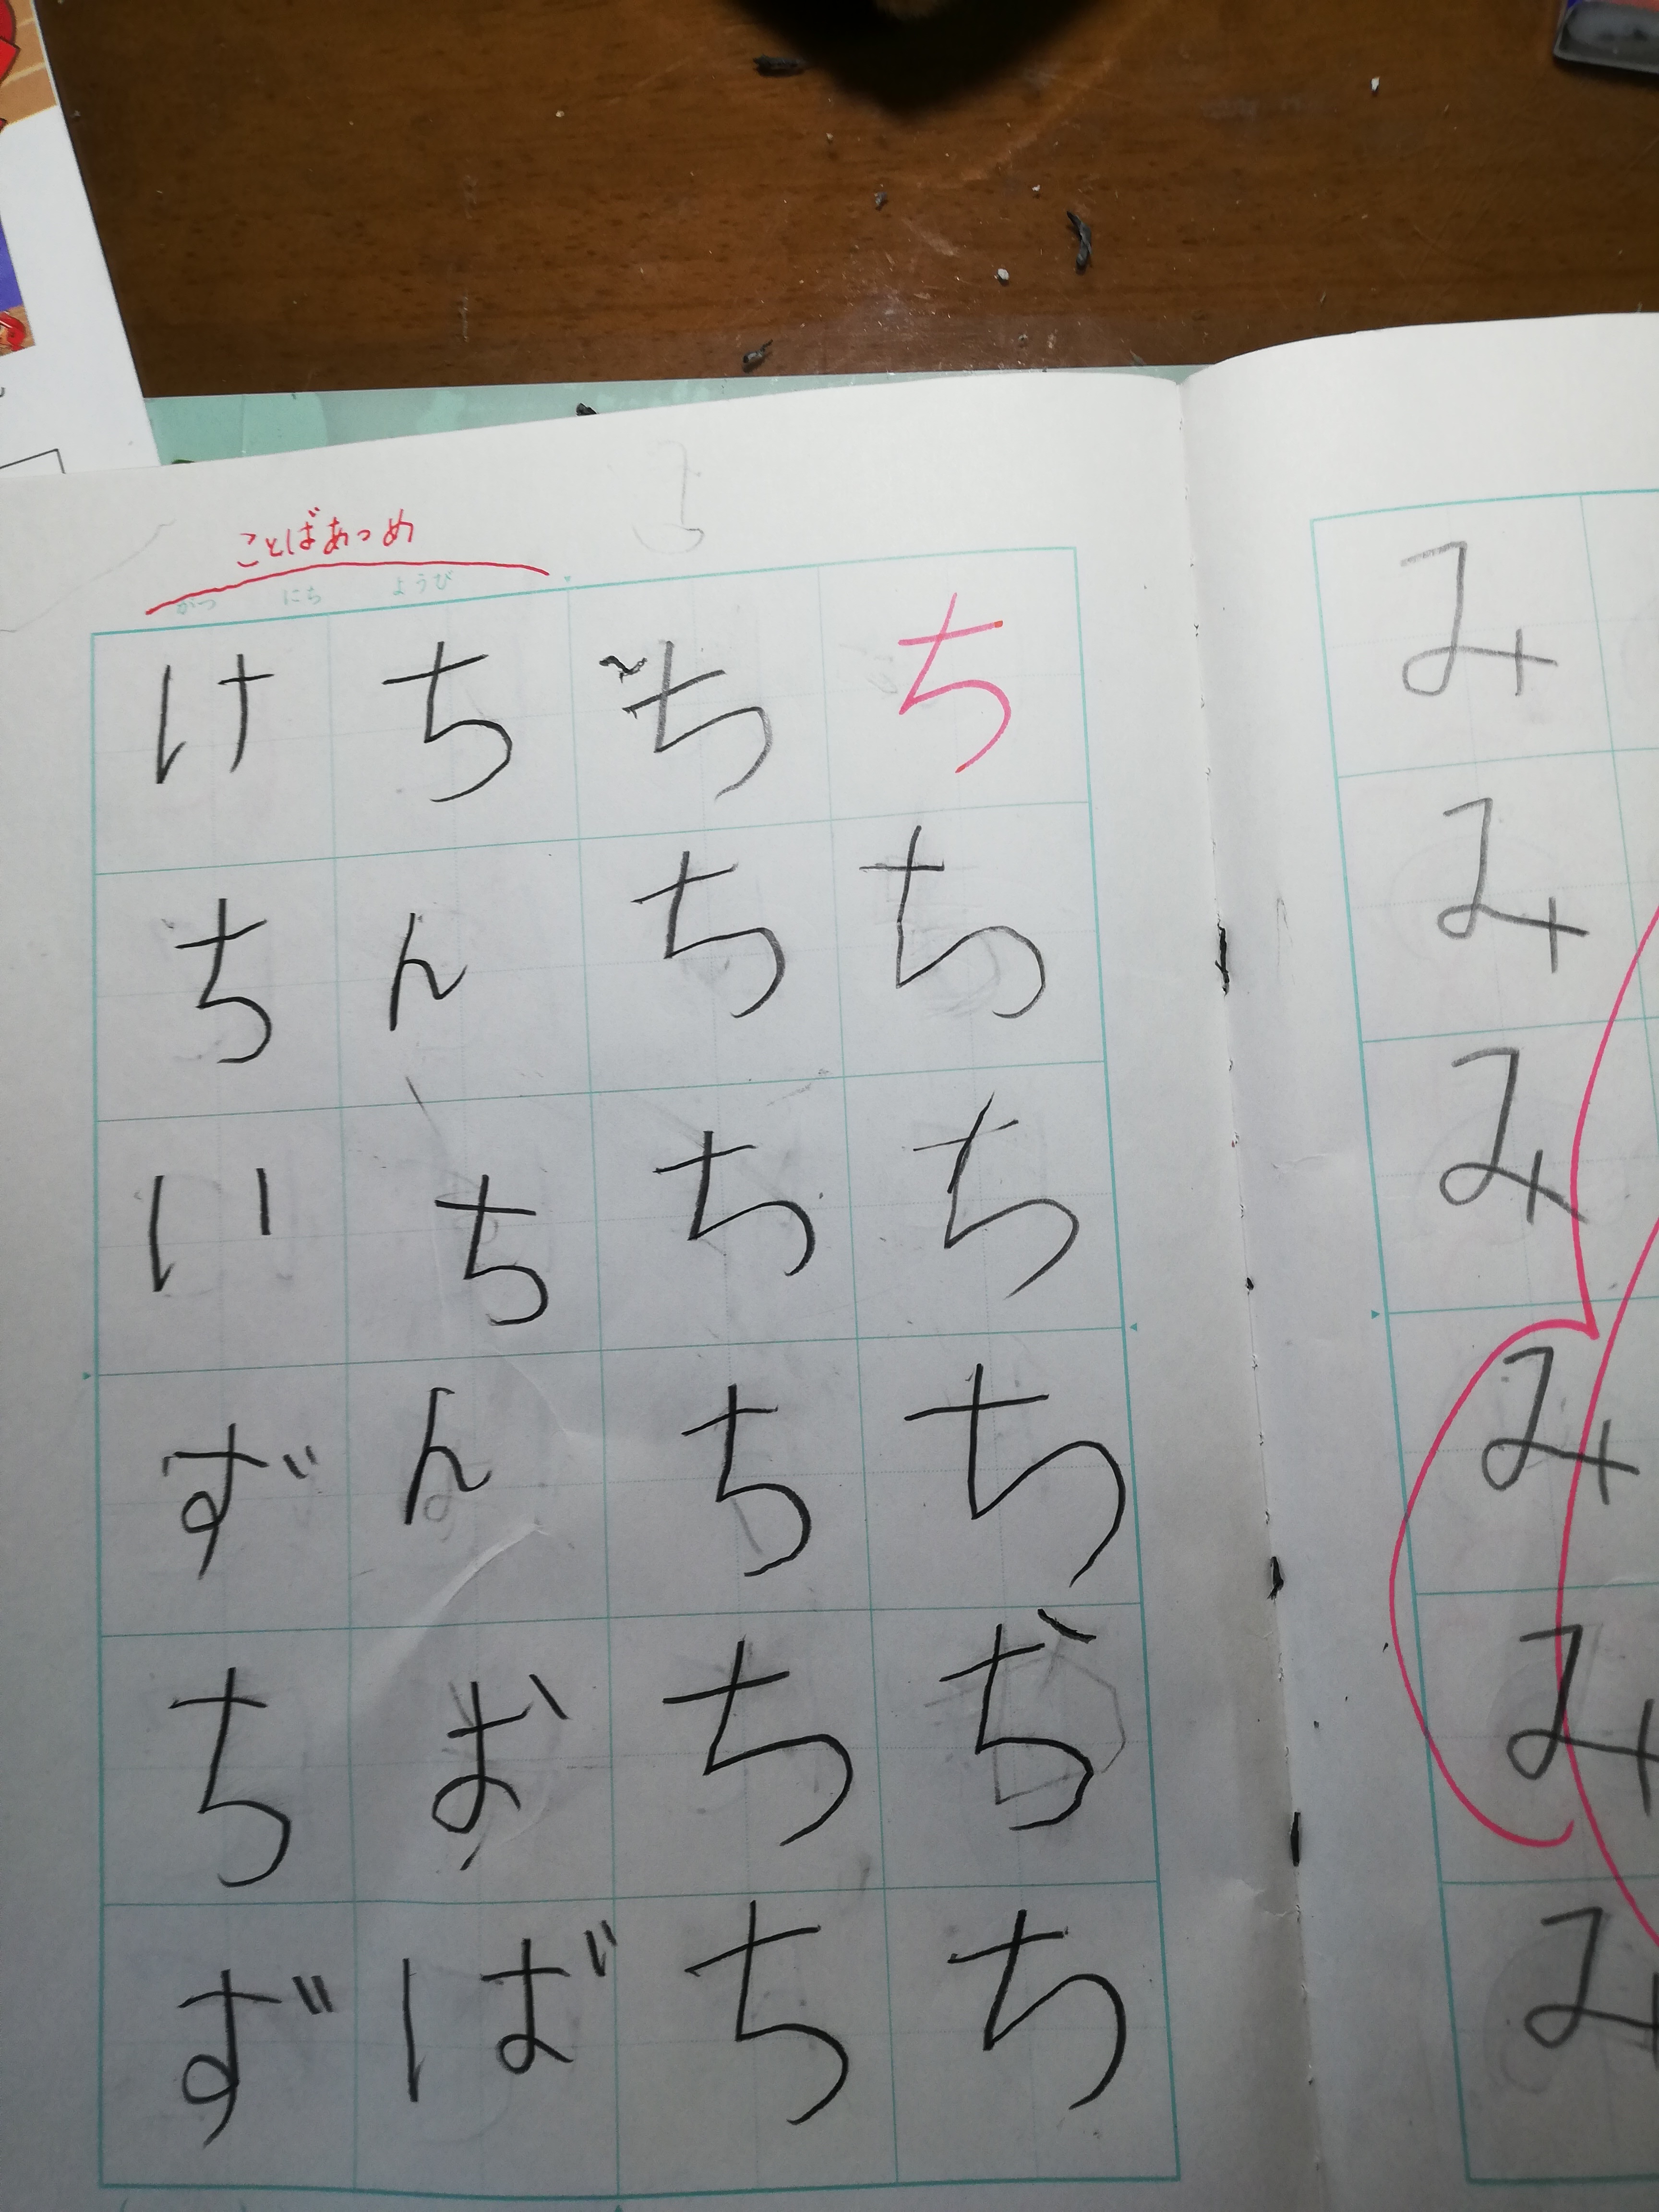 みみみみみみ
ちちちちちち
ちちちちちち
ことばあつめ
がつ にち ようび
ちんちんおば
けちいずちず